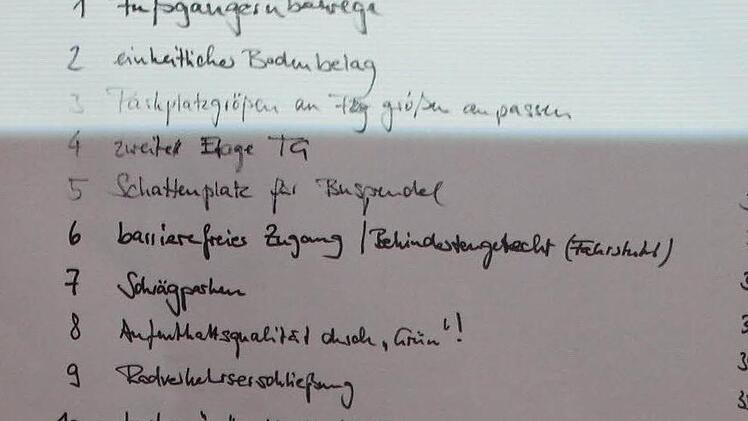 1 Fußgängernbahwege
2 einheitlicher Bodenbelag
3 Parkplatzgrößen an Fzg größen anpassen
4 zweite Etage TG
5 Schattenplatz für Buspendel
6 barrierefreies Zugang / Behindertengerecht (Fahrstuhl)
7 Schrägparken
8 Aufenthaltsqualität durch „Grün"!
9 Radverkehrserschließung